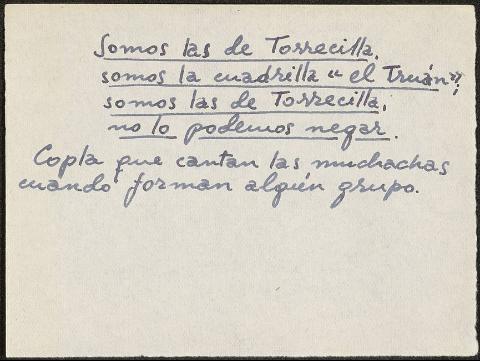 Somos las de Torrecilla,
somos la cuadrilla "el Truán";
somos las de Torrecilla,
no lo podemos negar.
Copla que cantan las muchachas
cuando forman algún grupo.